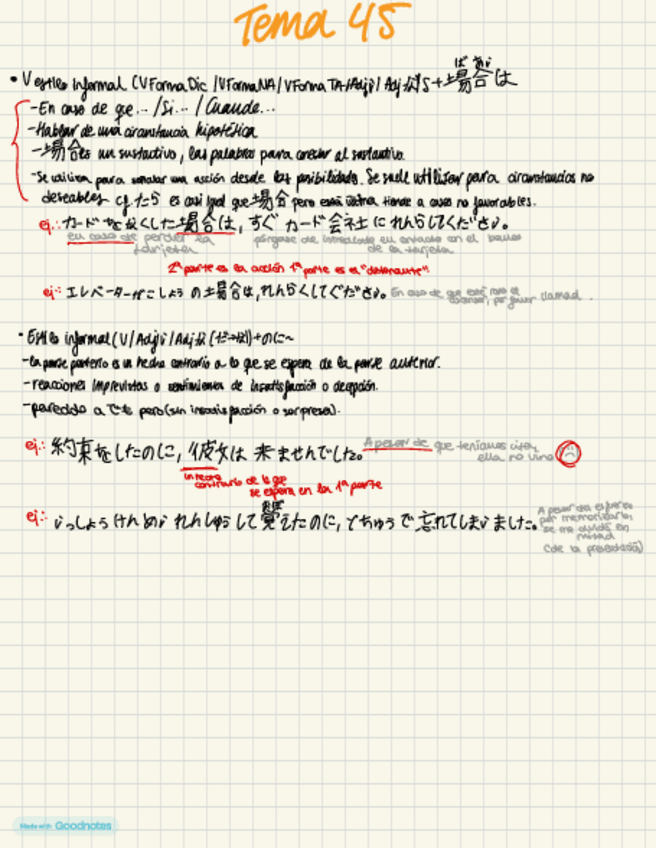 Tema 45
ば あい
• V estilo informal (V Forma Dic / V Forma NAI / V Forma TA / Adj い / Adj な) + 場合は
- En caso de que... / Si... / Cuando...
- Hablar de una circunstancia hipotética
- 場合 es un sustantivo, las palabras para conectar al sustantivo.
- Se utiliza para señalar una acción desde las posibilidades. Se suele utilizar para circunstancias no
deseables cf. たら es casi igual que 場合 pero esta última tiende a casos no favorables.
ej.: カードをなくした場合は, すぐ カード会社に れんらくしてください。
en caso de perder la tarjeta
póngase de inmediato en contacto con el banco
de la tarjeta
2ª parte es la acción 1ª parte es el "detonante"
ej.: エレベーターがこしょうの場合は, れんらくしてください。 En caso de que esté roto el
ascensor, por favor llamad.
• Estilo informal (V / Adj い / Adj な (だ→な)) + のに~
- la parte posterior es un hecho contrario a lo que se espera de la parte anterior.
- reacciones imprevistas o sentimientos de insatisfacción o decepción.
- parecido a でも pero (sin insatisfacción o sorpresa).
ej.: 約束をしたのに, 彼女は 来ませんでした。 A pesar de que teníamos cita,
ella no vino
un hecho
contrario de lo que
se espera en la 1ª parte
おぼ
ej.: いっしょうけんめい れんしゅうして 覚えたのに, とちゅうで 忘れてしまいました。
A pesar del esfuerzo
por memorizarlo,
se me olvidó en
mitad
(de la presentación)
Made with Goodnotes